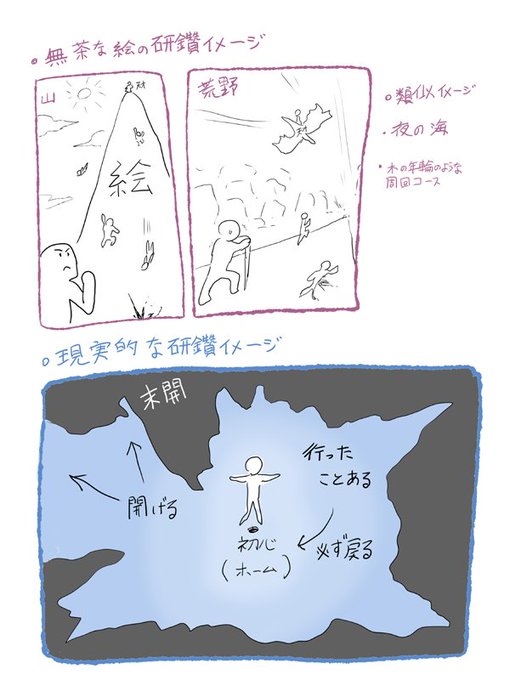 ○無茶な絵の研鑽イメージ
山
天才
絵
荒野
天才
○類似イメージ
・夜の海
・木の年輪のような
周回コース
○現実的な研鑽イメージ
未開
開げる
行った
ことある
初心
(ホーム)
必ず戻る